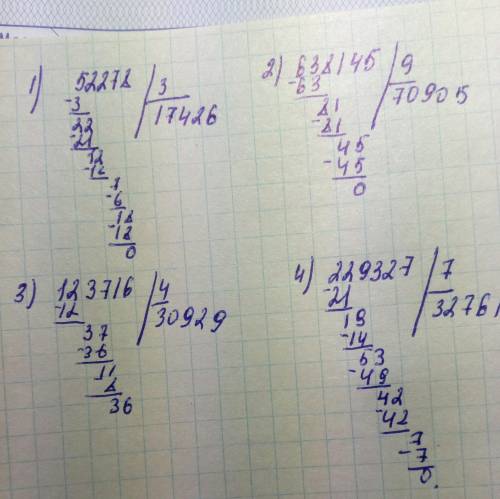 1) 52278 | 3
-3 17426
22
-21
12
-12
7
-6
18
-18
0
2) 638145 | 9
-63 70905
81
-81
45
-45
0
3) 123716 | 4
-12 30929
37
-36
11
8
36
4) 229327 | 7
-21 32761
19
-14
53
-49
42
-42
7
-7
0.